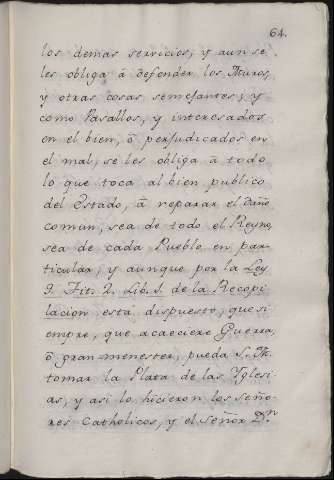 64.
los demas servicios, y aun se
les obliga â defender los Muros,
y otras cosas semejantes; y
como Vasallos, y interesados
en el bien, ô perjudicados en
el mal, se les obliga â todo
lo que toca al bien publico
del Estado, â reparar el daño
comun, sea de todo el Reyno,
sea de cada Pueblo en par-
ticular; y aunque por la Ley
9. Tit. 2. Lib. 1. de la Recopi-
lacion está dispuesto, que si-
empre, que acaeciere Guerra,
ô gran menester, pueda S. M.
tomar la Plata de las Yglesi-
as, y asi lo hicieron los Seño-
res Catholicos, y el Señor D.n